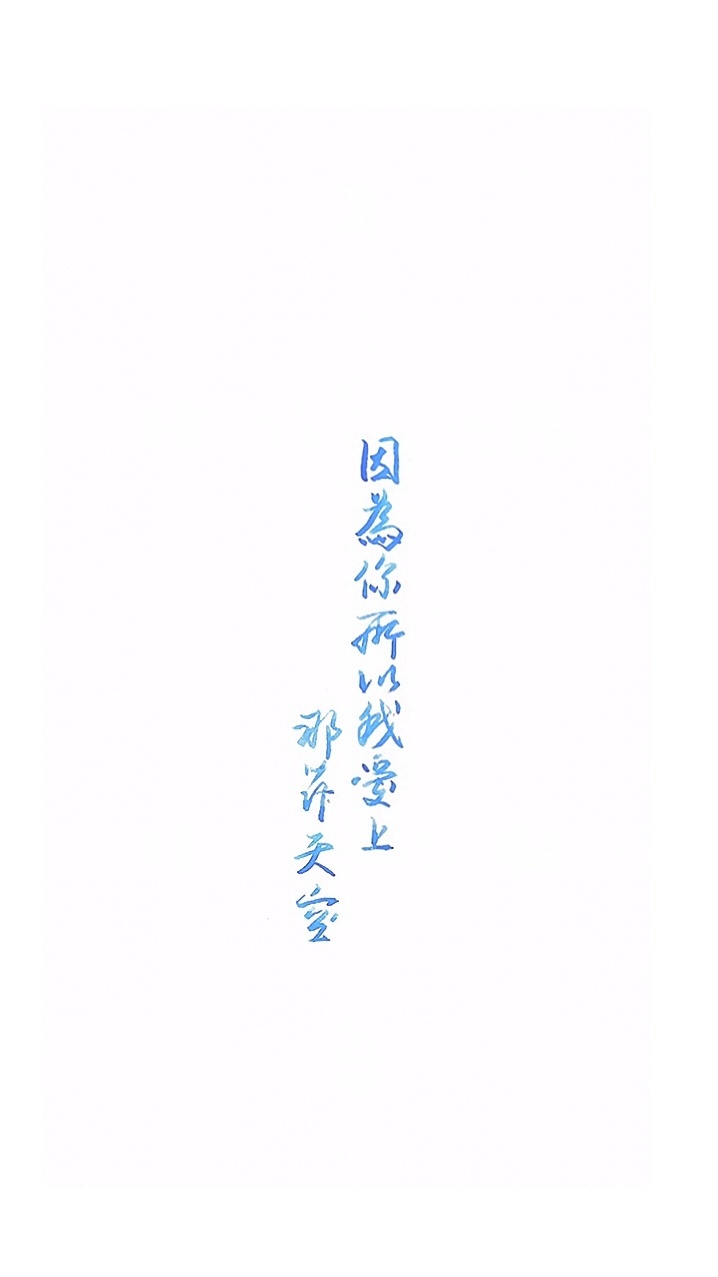 因為你所以我愛上
那天空